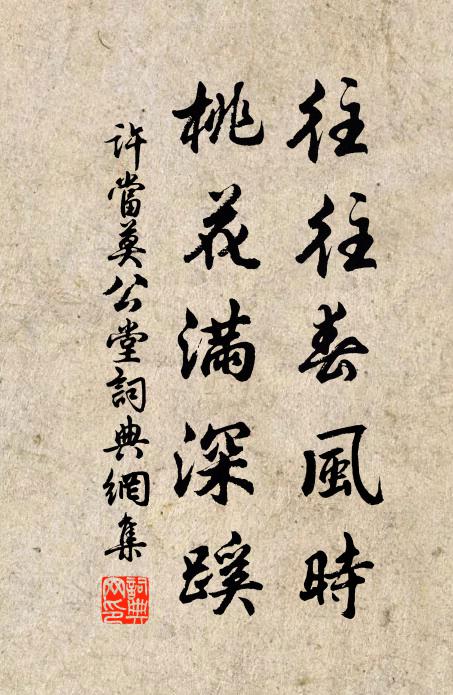 往往春風時
桃花滿深蹊
許當莫公堂詞典網集
詞典网印